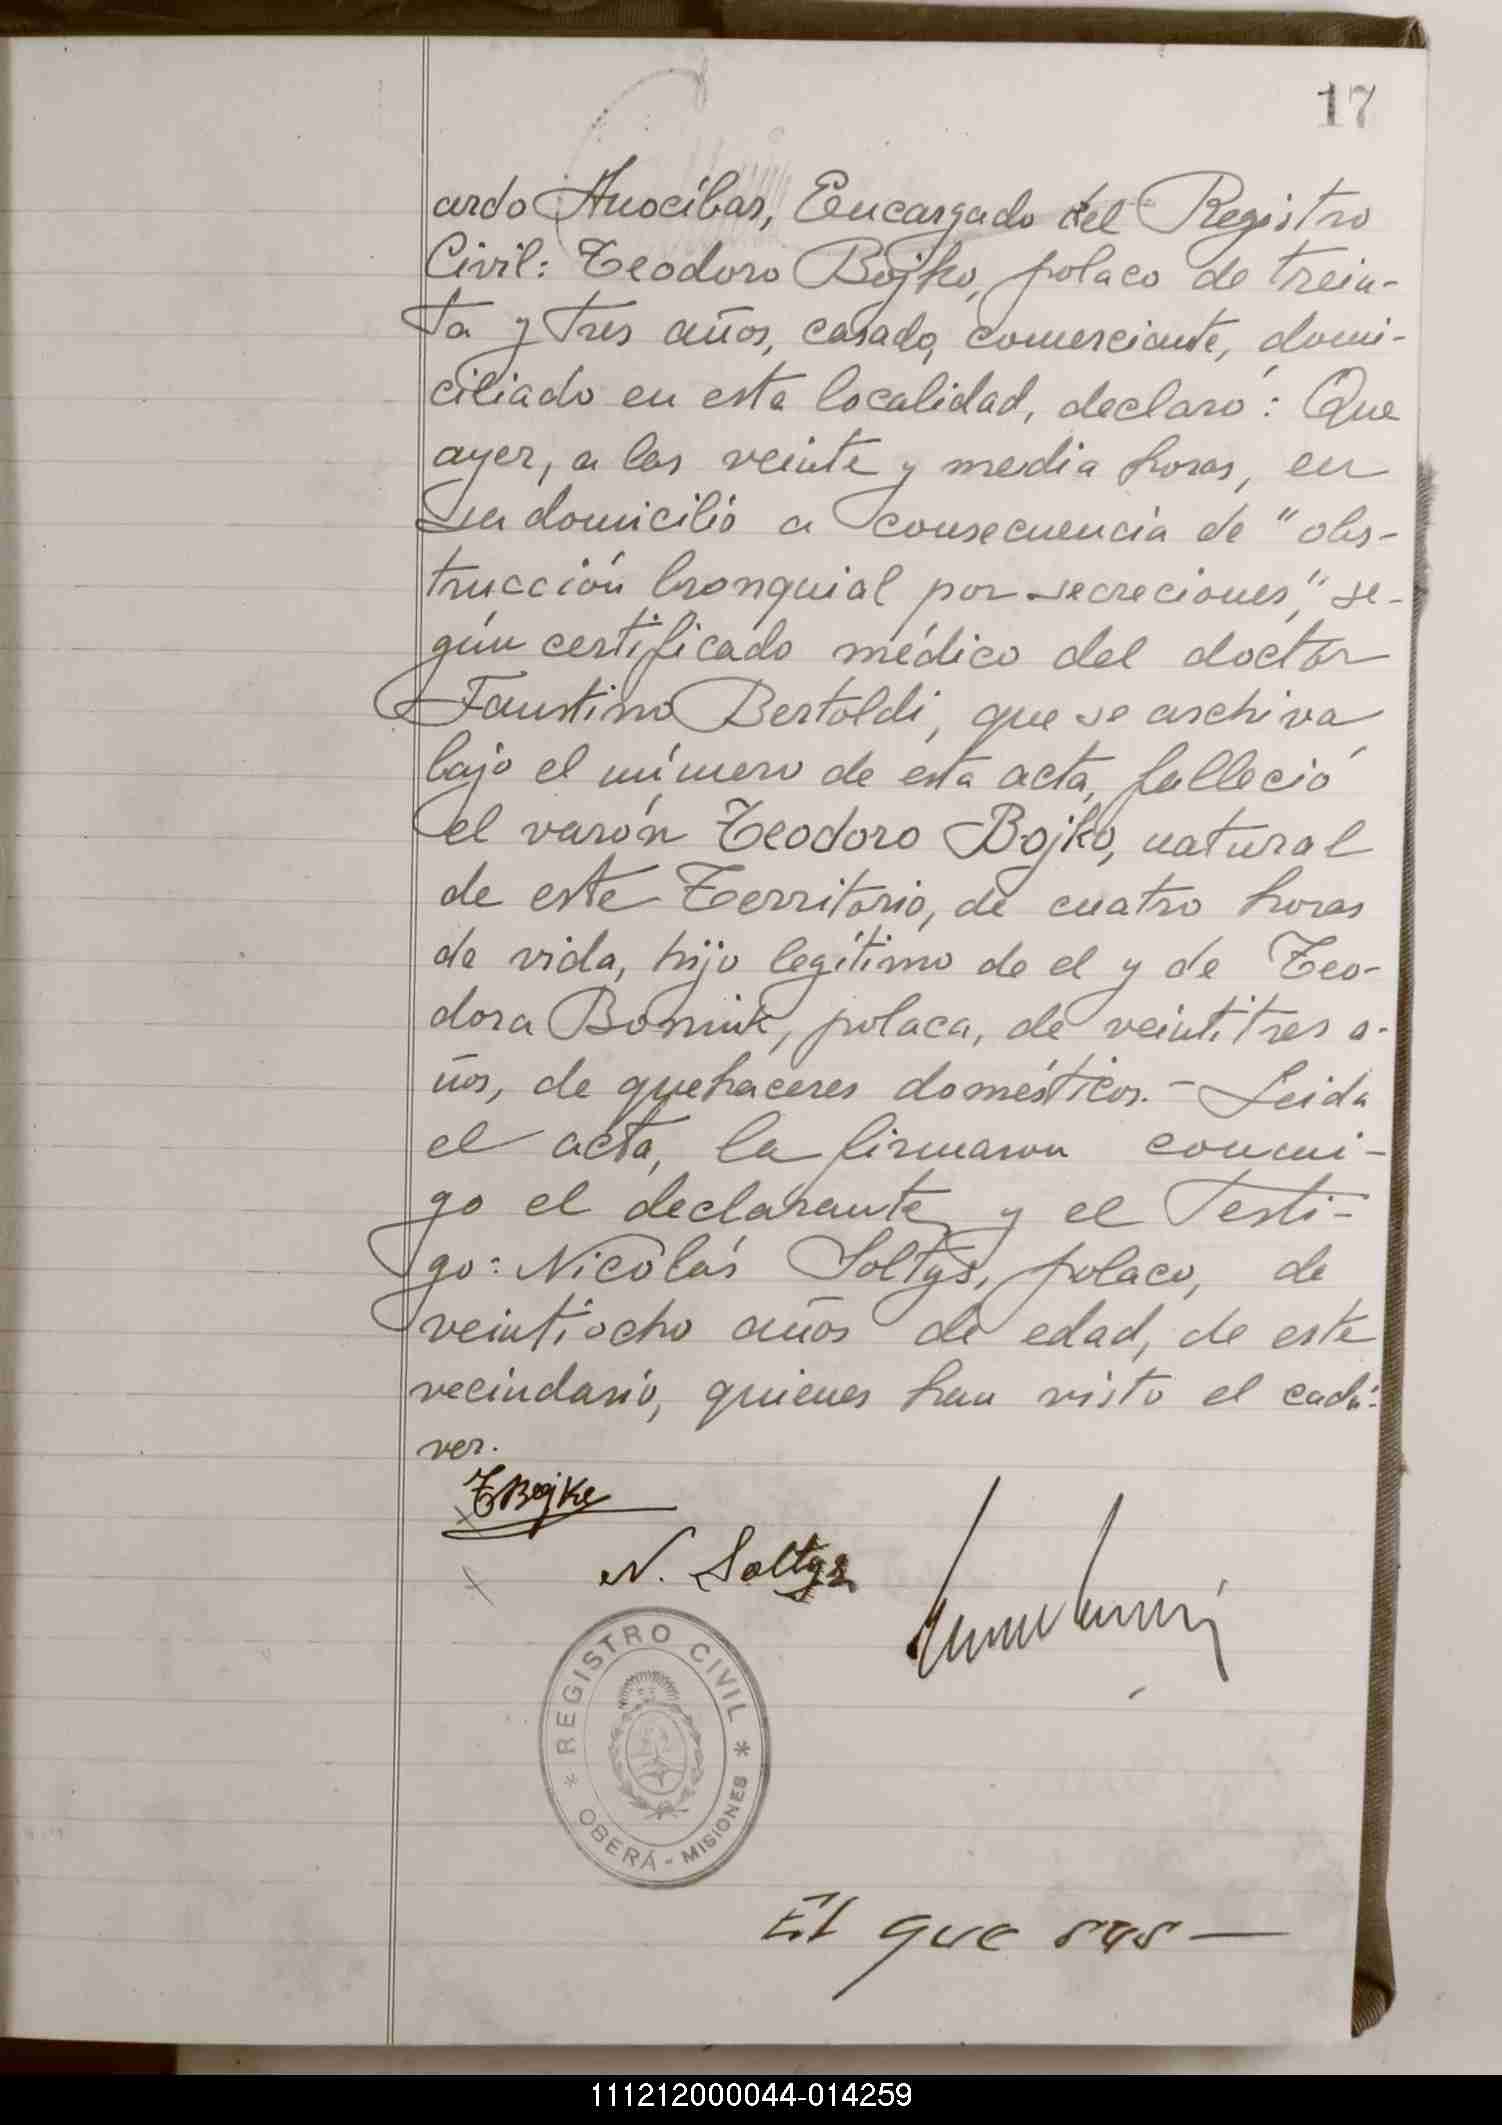 17
ardo Anocíbar, Encargado del Registro
Civil: Teodoro Bojko, polaco de trein-
ta y tres años, casado, comerciante, domi-
ciliado en esta localidad, declaró: Que
ayer, a las veinte y media horas, en
su domicilio a consecuencia de "obs-
trucción bronquial por secreciones", se-
gún certificado médico del doctor
Faustino Bertoldi, que se archiva
bajo el número de esta acta, falleció
el varón Teodoro Bojko, natural
de este Territorio, de cuatro horas
de vida, hijo legítimo de el y de Teo-
dora Bomiuk, polaca, de veintitres a-
ños, de quehaceres domésticos.- Leida
el acta, la firmaron conmi-
go el declarante y el Testi-
go: Nicolás Soltys, polaco, de
veintiocho años de edad, de este
vecindario, quienes han visto el cadá-
ver.
T Bojko
N. Soltys
* REGISTRO CIVIL *
OBERÁ - MISIONES
El que sus—
111212000044-014259